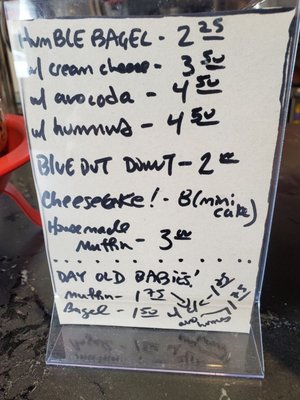 HUMBLE BAGEL - 2 25
w/ cream cheese - 3 50
w/ avocoda - 4 50
w/ hummus - 4 50
BLUE DUT DONUT - 2 00
CHEESECAKE! - 8 (mini cake)
Homemade muffin - 3 00
DAY OLD BABIES!
muffin - 1 75
Bagel - 1 50
avo
hummus